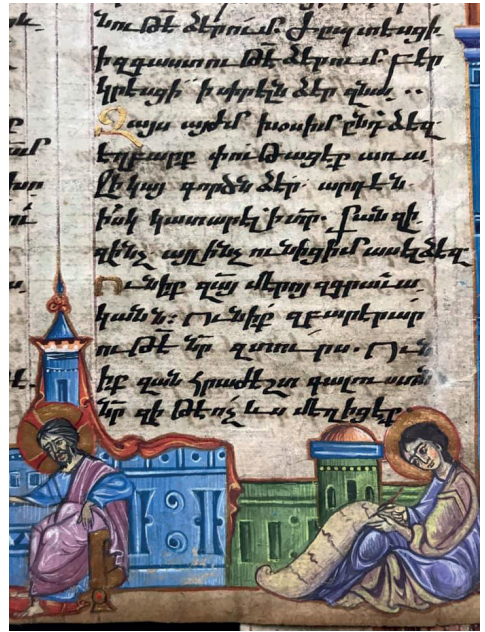 նութե ձերում.
ի զգաստութե ձերում. բեր
կրեսցի ի փրկէն ձեր զնա..
Զայս այժմ խօսիմ ընդ ձեզ.
եղբարք փութացէք առա
ջի կայ գործն ձեր. արդէն
իսկ կատարել ի մր. բան զի.
զինչ այլ ինչ ունիցիմ ասել ձեզ
Ունիք զայ մերոյ զգրաւա
կանն։ Ունիք զբարերար
ութե նր զտուրս. Ուն
իք զան հրաժեշտ գալուստն
նր զի թե ոչ ևս մեղիցէք.